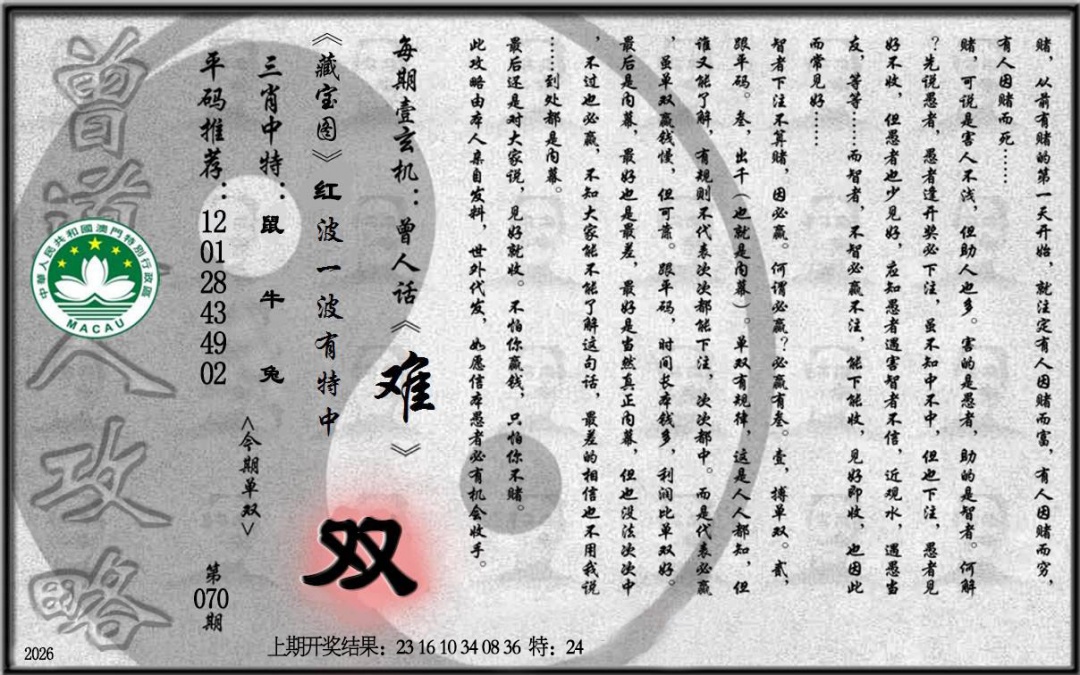 赌，从前有赌的第一天开始，就注定有人因赌而富，有人因赌而穷，
有人因赌而死……
赌，可说是害人不浅，但助人也多。害的是愚者，助的是智者。何解
？先说愚者，愚者逢开奖必下注，虽不知中不中，但也下注，愚者见
好不收，但愚者也少见好，应知愚者遇害智者不信，近观水，遇愚当
友，等等……而智者，不智必赢不注，能下能收，见好即收，也因此
而常见好……
智者下注不算赌，因必赢。何谓必赢？必赢有叁。壹，搏单双。贰，
跟平码。叁，出千（也就是内幕）。单双有规律，这是人人都知，但
谁又能了解，有规则不代表次次都能下注，次次都中。而是代表必赢
，虽单双赢钱慢，但可靠。跟平码，时间长本钱多，利润比单双好。
最后是内幕，最好也是最差，最好是当然真正内幕，但也没法次次中
，不过也必赢，不知大家能不能了解这句话，最差的相信也不用我说
……到处都是内幕。
最后还是对大家说，见好就收。不怕你赢钱，只怕你不赌。
此攻略由本人亲自发料，世外代发，如愿信本愚者必有机会收手。
每期壹玄机：曾人话《难》
《藏宝图》红波一波有特中
双
三肖中特：鼠牛兔
<今期单双>
平码推荐：12 01 28 43 49 02
第070期
曾道人攻略
中華人民共和國澳門特別行政區
MACAU
2026
上期开奖结果：23 16 10 34 08 36 特：24